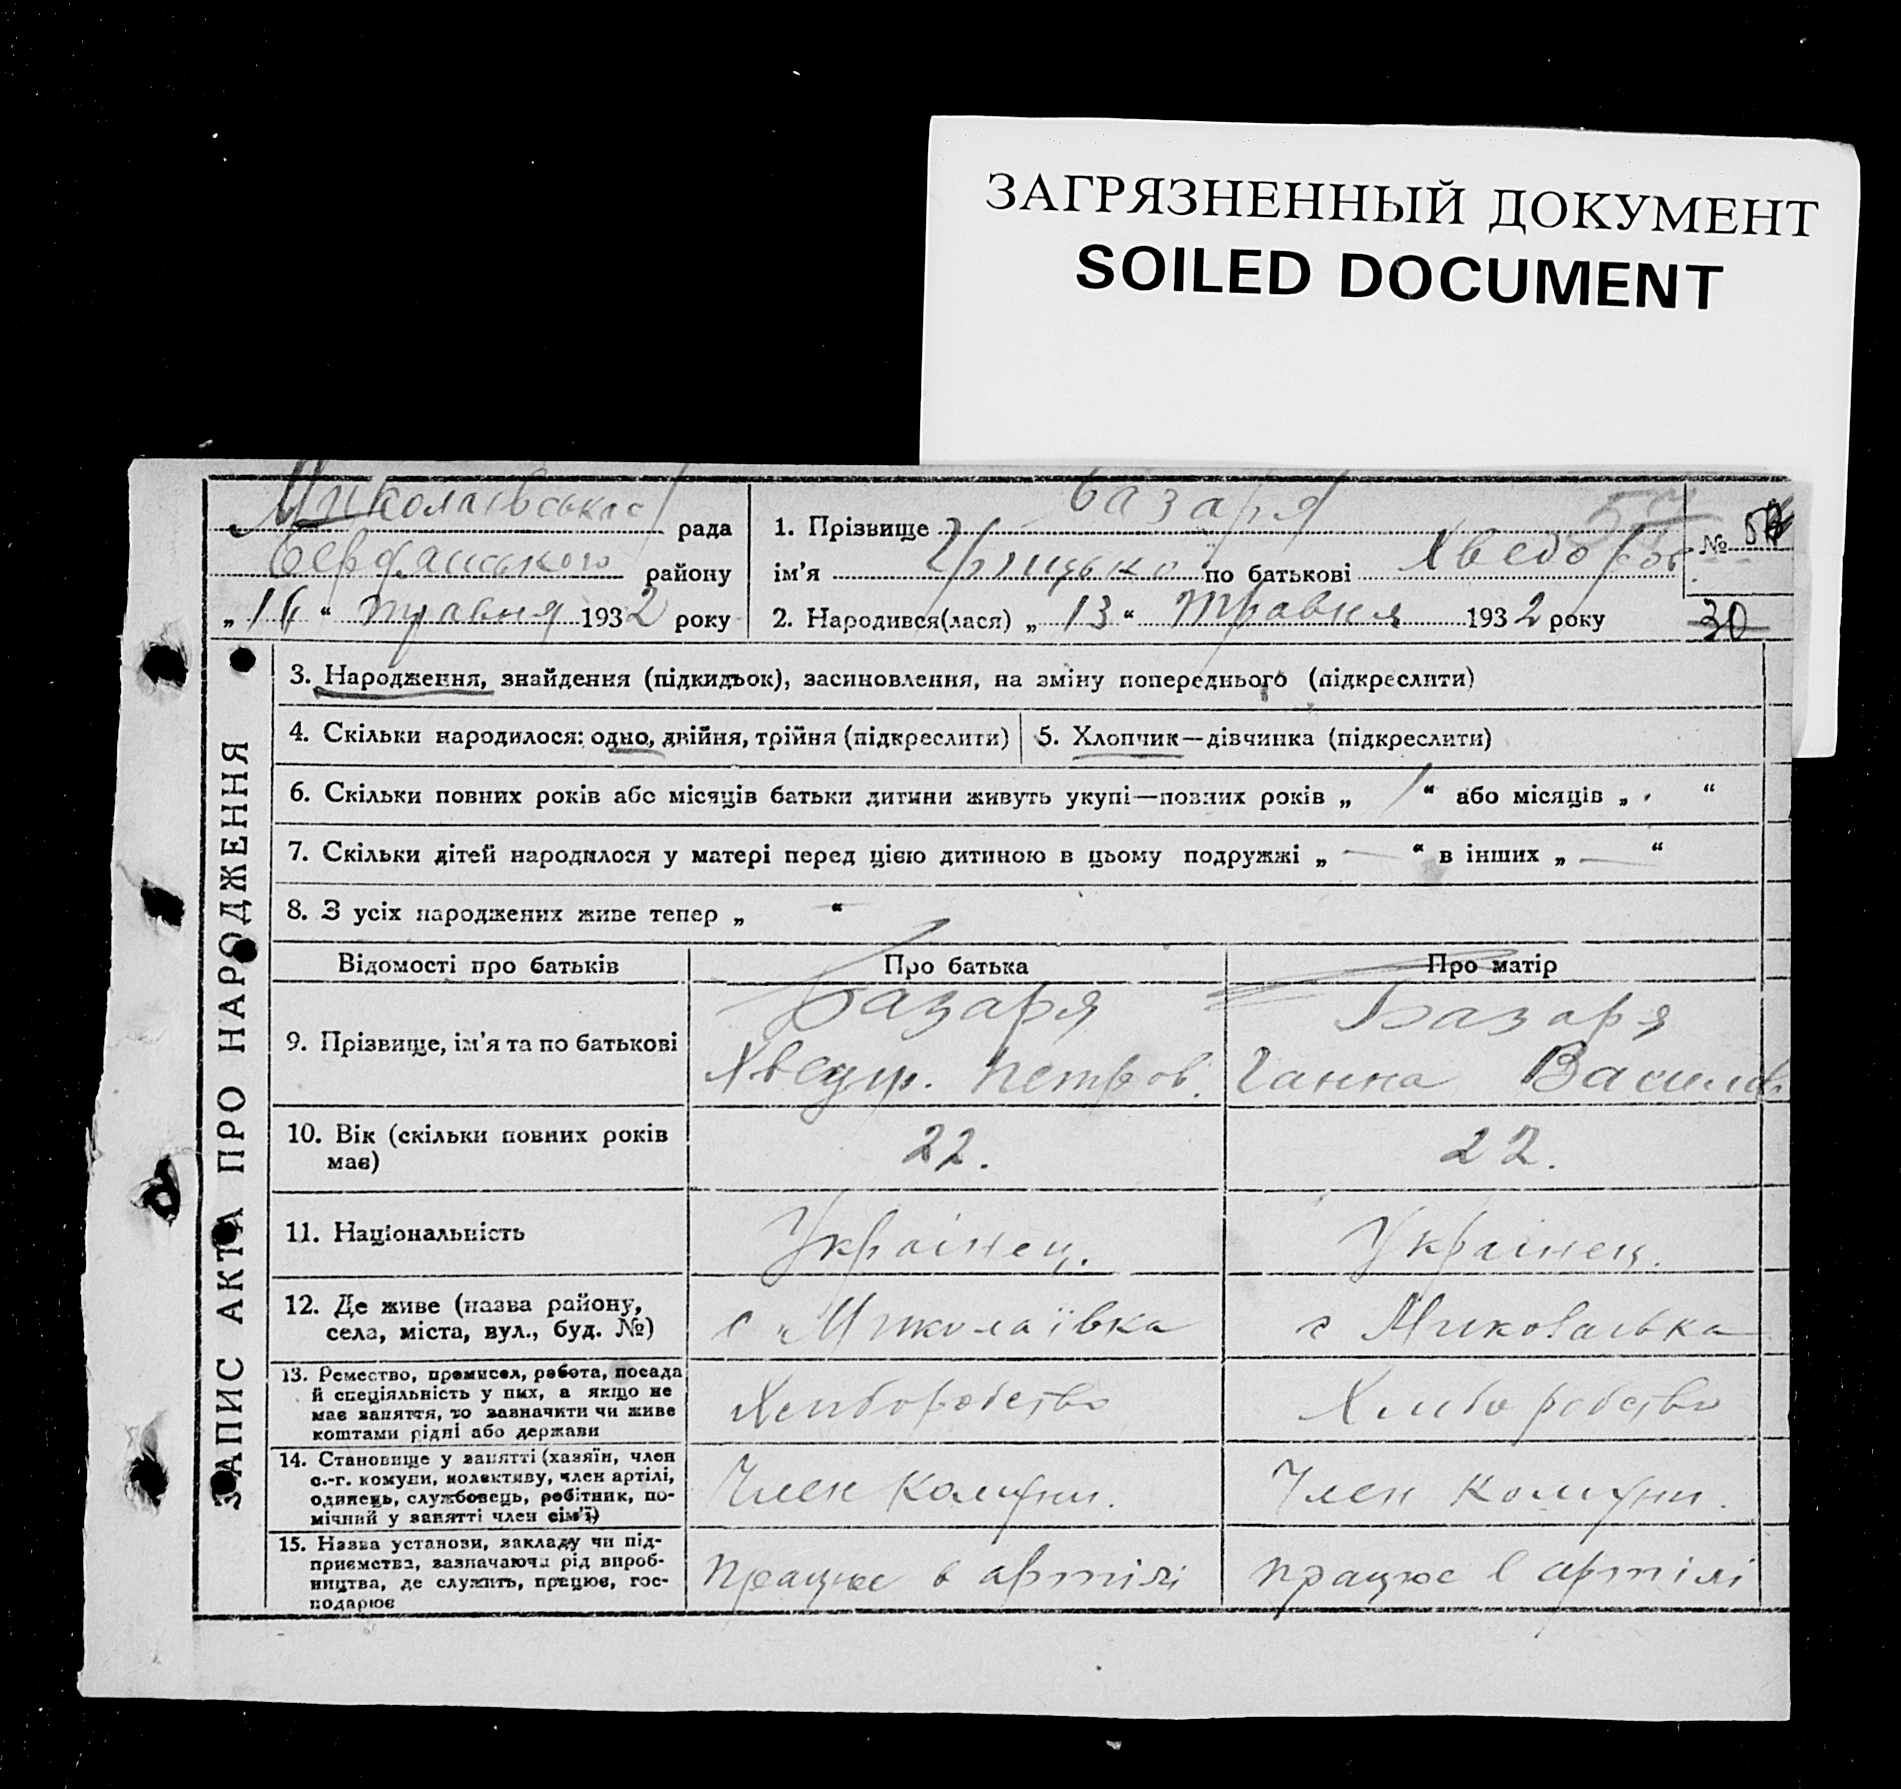 ЗАГРЯЗНЕННЫЙ ДОКУМЕНТ
SOILED DOCUMENT
Миколаївська рада
Бердянського району
„16“ травня 1932 року
1. Прізвище Базаря
ім’я Грицько по батькові Хведоров
2. Народився(лася) „13“ травня 1932 року
№
30
ЗАПИС АКТА ПРО НАРОДЖЕННЯ
3. Народження, знайдення (підкидьок), засиновлення, на зміну попереднього (підкреслити)
4. Скільки народилося: одно, двійня, трійня (підкреслити)
5. Хлопчик—дівчинка (підкреслити)
6. Скільки повних років або місяців батьки дитини живуть укупі—повних років „ 1 “ або місяців „ “
7. Скільки дітей народилося у матері перед цією дитиною в цьому подружжі „ — “ в інших „ — “
8. З усіх народжених живе тепер „ “
Відомості про батьків
Про батька
Про матір
9. Прізвище, ім’я та по батькові
Базаря
Хведір. Петров.
Базаря
Ганна Василів
10. Вік (скільки повних років
має)
22.
22.
11. Національність
Українец.
Українец.
12. Де живе (назва району,
села, міста, вул., буд. №)
с Миколаївка
с
13. Ремество, промисел, робота, посада
й спеціяльність у них, а якщо не
має заняття, то зазначити чи живе
коштами рідні або держави
Хлиборобство
Хлиборобство
14. Становище у занятті (хазяїн, член
с.-г. комуни, колективу, член артілі,
одинець, службовець, робітник, по-
мічний у занятті член сім’ї)
Член Комуни.
Член Комуни.
15. Назва установи, закладу чи під-
приємства, зазначаючи рід вироб-
ництва, де служить, працює, гос-
подарює
працює в артілі
працює в артілі